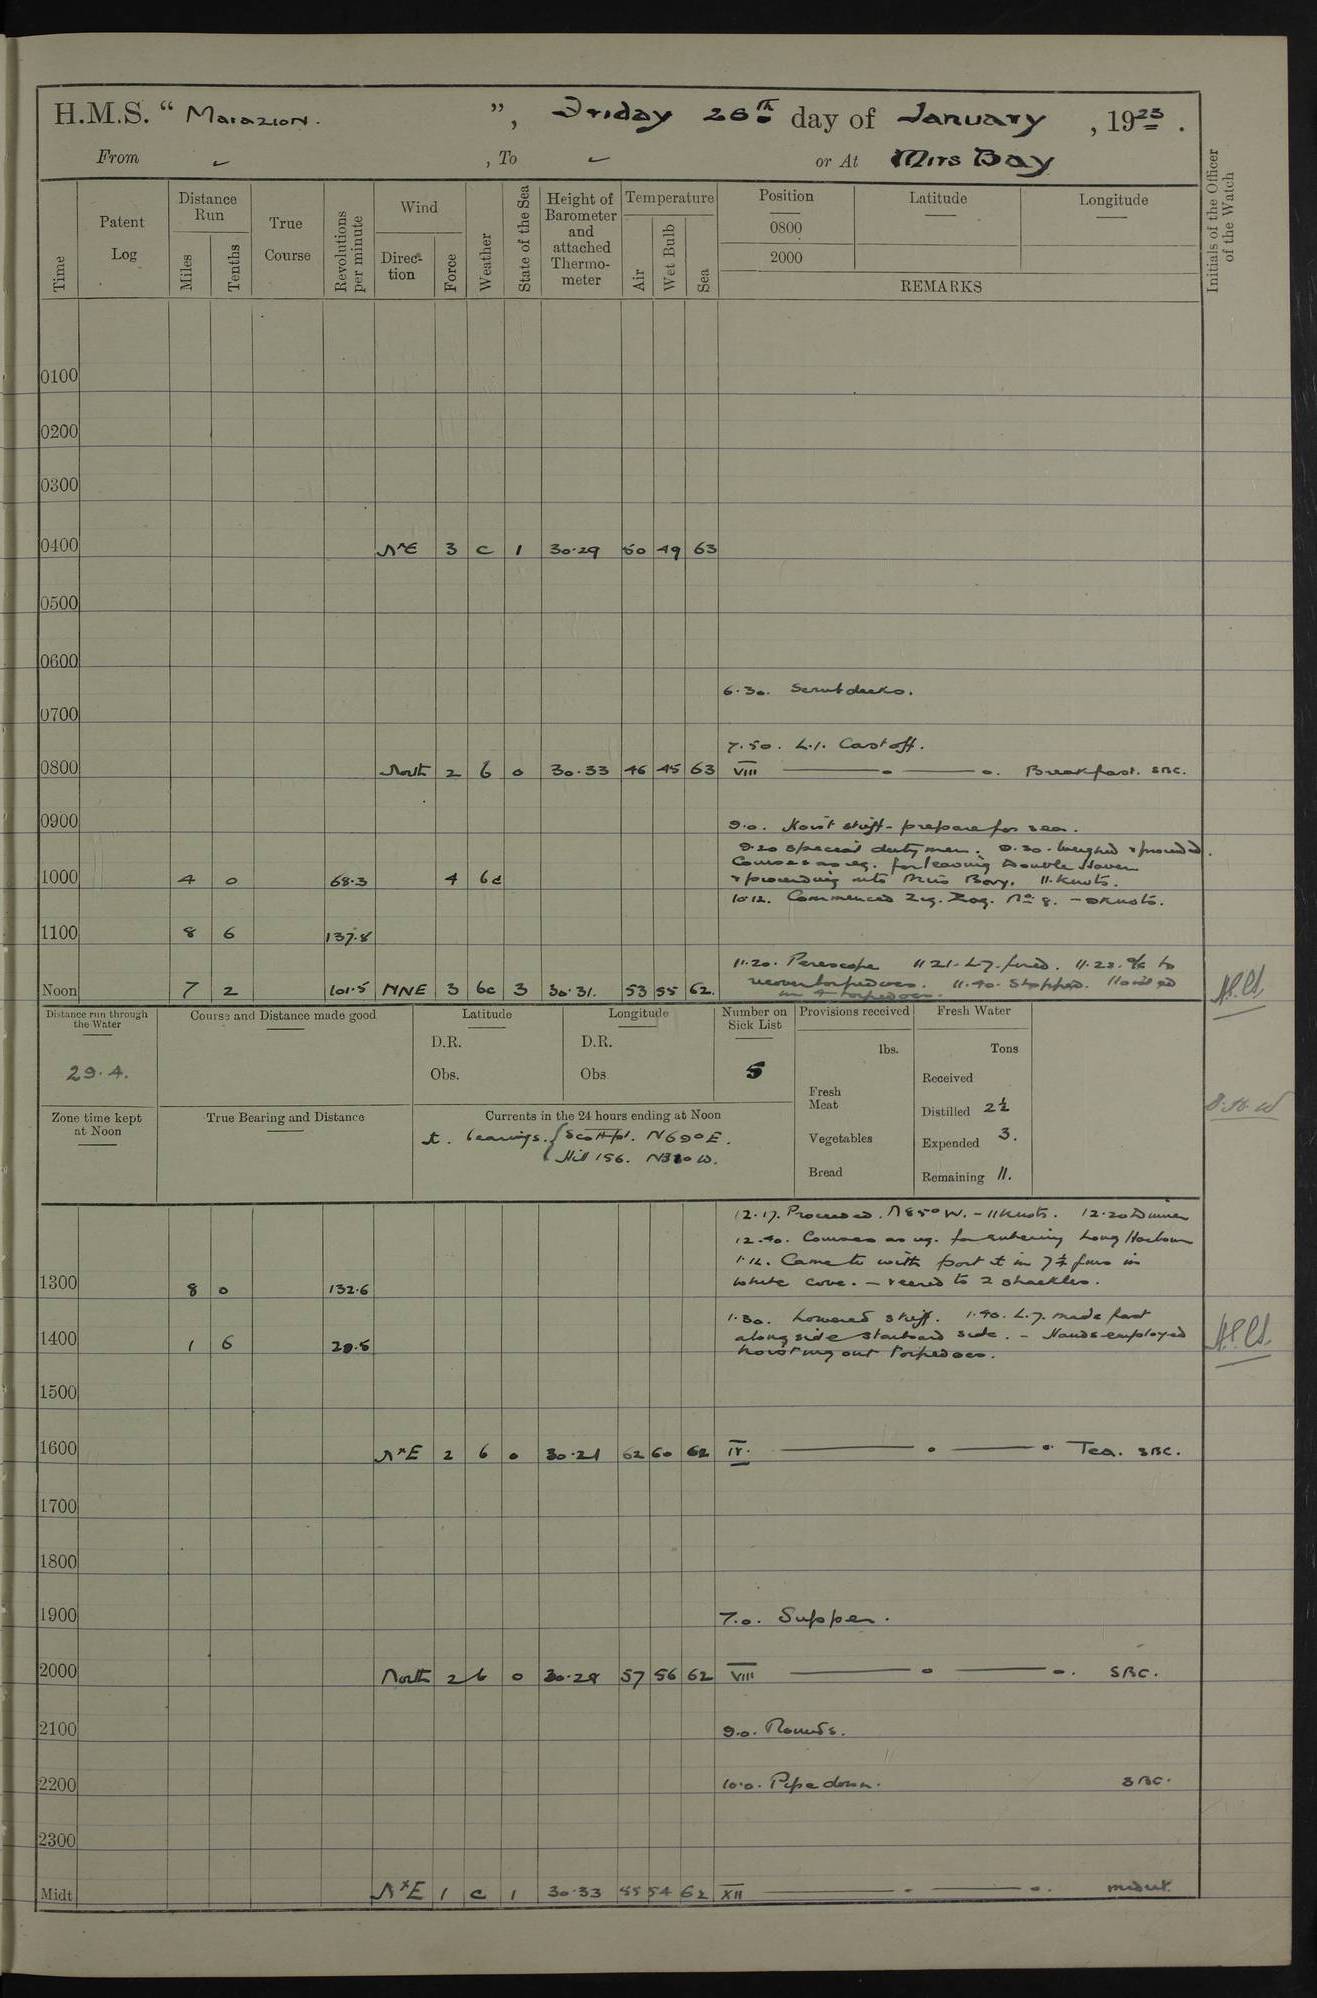 H.M.S. “ Marazion. ”, Friday 26th day of January , 1923 .
From ~ , To ~ or At Mirs Bay
Time
Patent Log
Distance Run
Miles
Tenths
True Course
Revolutions per minute
Wind
Direction
Force
Weather
State of the Sea
Height of Barometer and attached Thermometer
Temperature
Air
Wet Bulb
Sea
Position
0800
2000
Latitude
Longitude
REMARKS
Initials of the Officer of the Watch
0100
0200
0300
0400 NxE 3 c 1 30.29 50 49 63
0500
0600
6.30. Scrub decks.
0700
7.50. L.1. Cast off.
0800 North 2 b 0 30.33 46 45 63 VIII Breakfast. SBC.
0900 9.0. Hoist skiff - prepare for sea.
9.20 special duty men. 9.30. Weighed & proceeded.
Courses as req. for leaving Double Haven
1000 4 0 68.3 4 bc & proceeding into Mirs Bay. 11. Knots.
10.12. Commenced Zig. Zag. No 8. - 8 Knots.
1100 8 6 137.8
11.20. Periscope 11 21. L7. fired. 11.23. a/c to
recover torpedoes. 11.40. Stopped. Hoisted
Noon 7 2 101.5 NNE 3 bc 3 30.31. 53 55 62.
in 4 torpedoes.
Distance run through the Water
29.4.
Course and Distance made good
Latitude
D.R.
Obs.
Longitude
D.R.
Obs
Number on Sick List
5
Provisions received
lbs.
Fresh Meat
Vegetables
Bread
Fresh Water
Tons
Received
Distilled 2½
Expended 3.
Remaining 11.
Zone time kept at Noon
True Bearing and Distance
Currents in the 24 hours ending at Noon
bearings. Scott pt. N69°E.
Hill 156. N W.
12.17. Proceeded. N85°W. - 11 Knots. 12.20 Dinner
12.40. Courses as req. for entering Long Harbour
1.12. Came to with port in 7½ fms in
1300 8 0 132.6 White cove. - veered to 2 shackles.
1.30. Lowered skiff. 1.40. L.7. made fast
1400 1 6 29.5 alongside starboard side. - Hands employed
hoisting out torpedoes.
1500
1600 NxE 2 b 0 30.21 62 60 62 IV. Tea. SBC.
1700
1800
1900 7.0. Supper.
2000 North 2 b 0 30.28 57 56 62 VIII SBC.
2100 9.0. Rounds.
2200 10.0. Pipe down. SBC.
2300
Midt NxE 1 c 1 30.33 55 54 62 XII